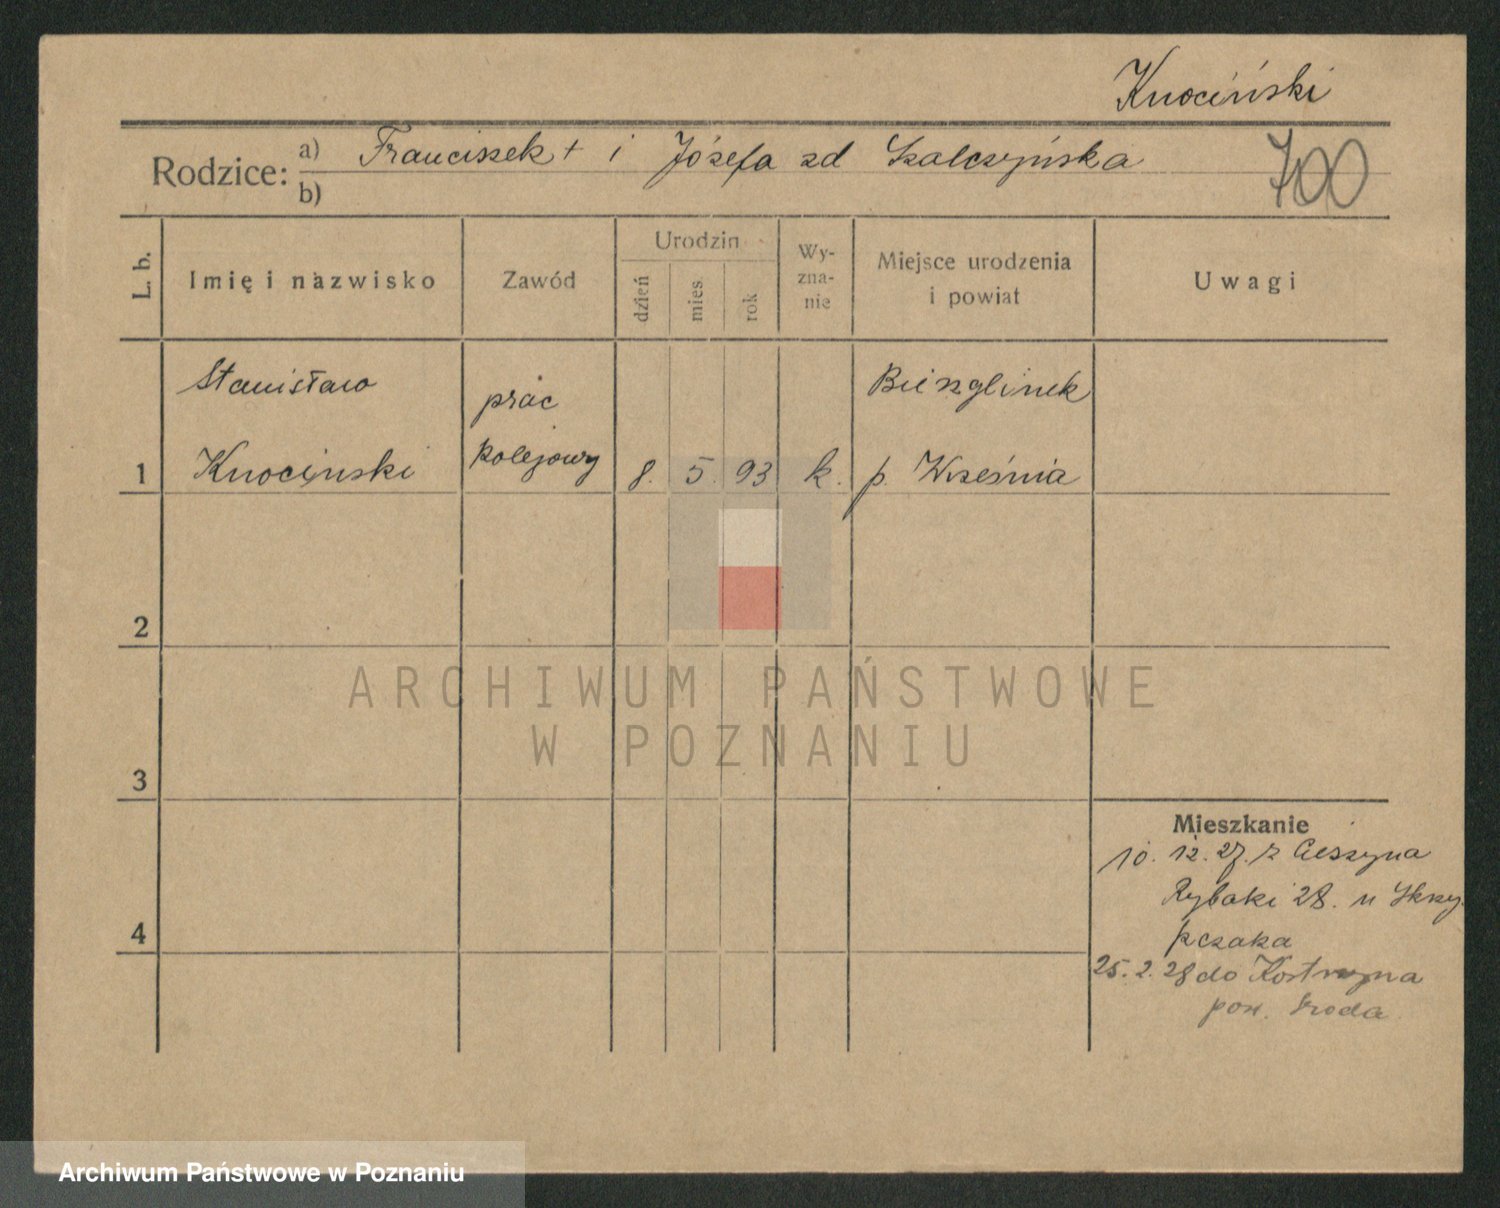 Knociński
Rodzice: a) Franciszek + i Józefa zd Szalczyńska
b)
700
L. b.
Imię i nazwisko
Zawód
Urodzin
dzień
mies.
rok
Wy-
zna-
nie
Miejsce urodzenia
i powiat
Uwagi
Stanisław
Knociński
prac
kolejowy
1
8. 5. 93
k.
Bieżglinek
p. Września
2
3
4
Mieszkanie
10. 12. 27. z Cieszyna
Rybaki 28. u Skrzy-
pczaka
25. 2. 28 do Kostrzyna
pow. Środa
ARCHIWUM PAŃSTWOWE
W POZNANIU
Archiwum Państwowe w Poznaniu